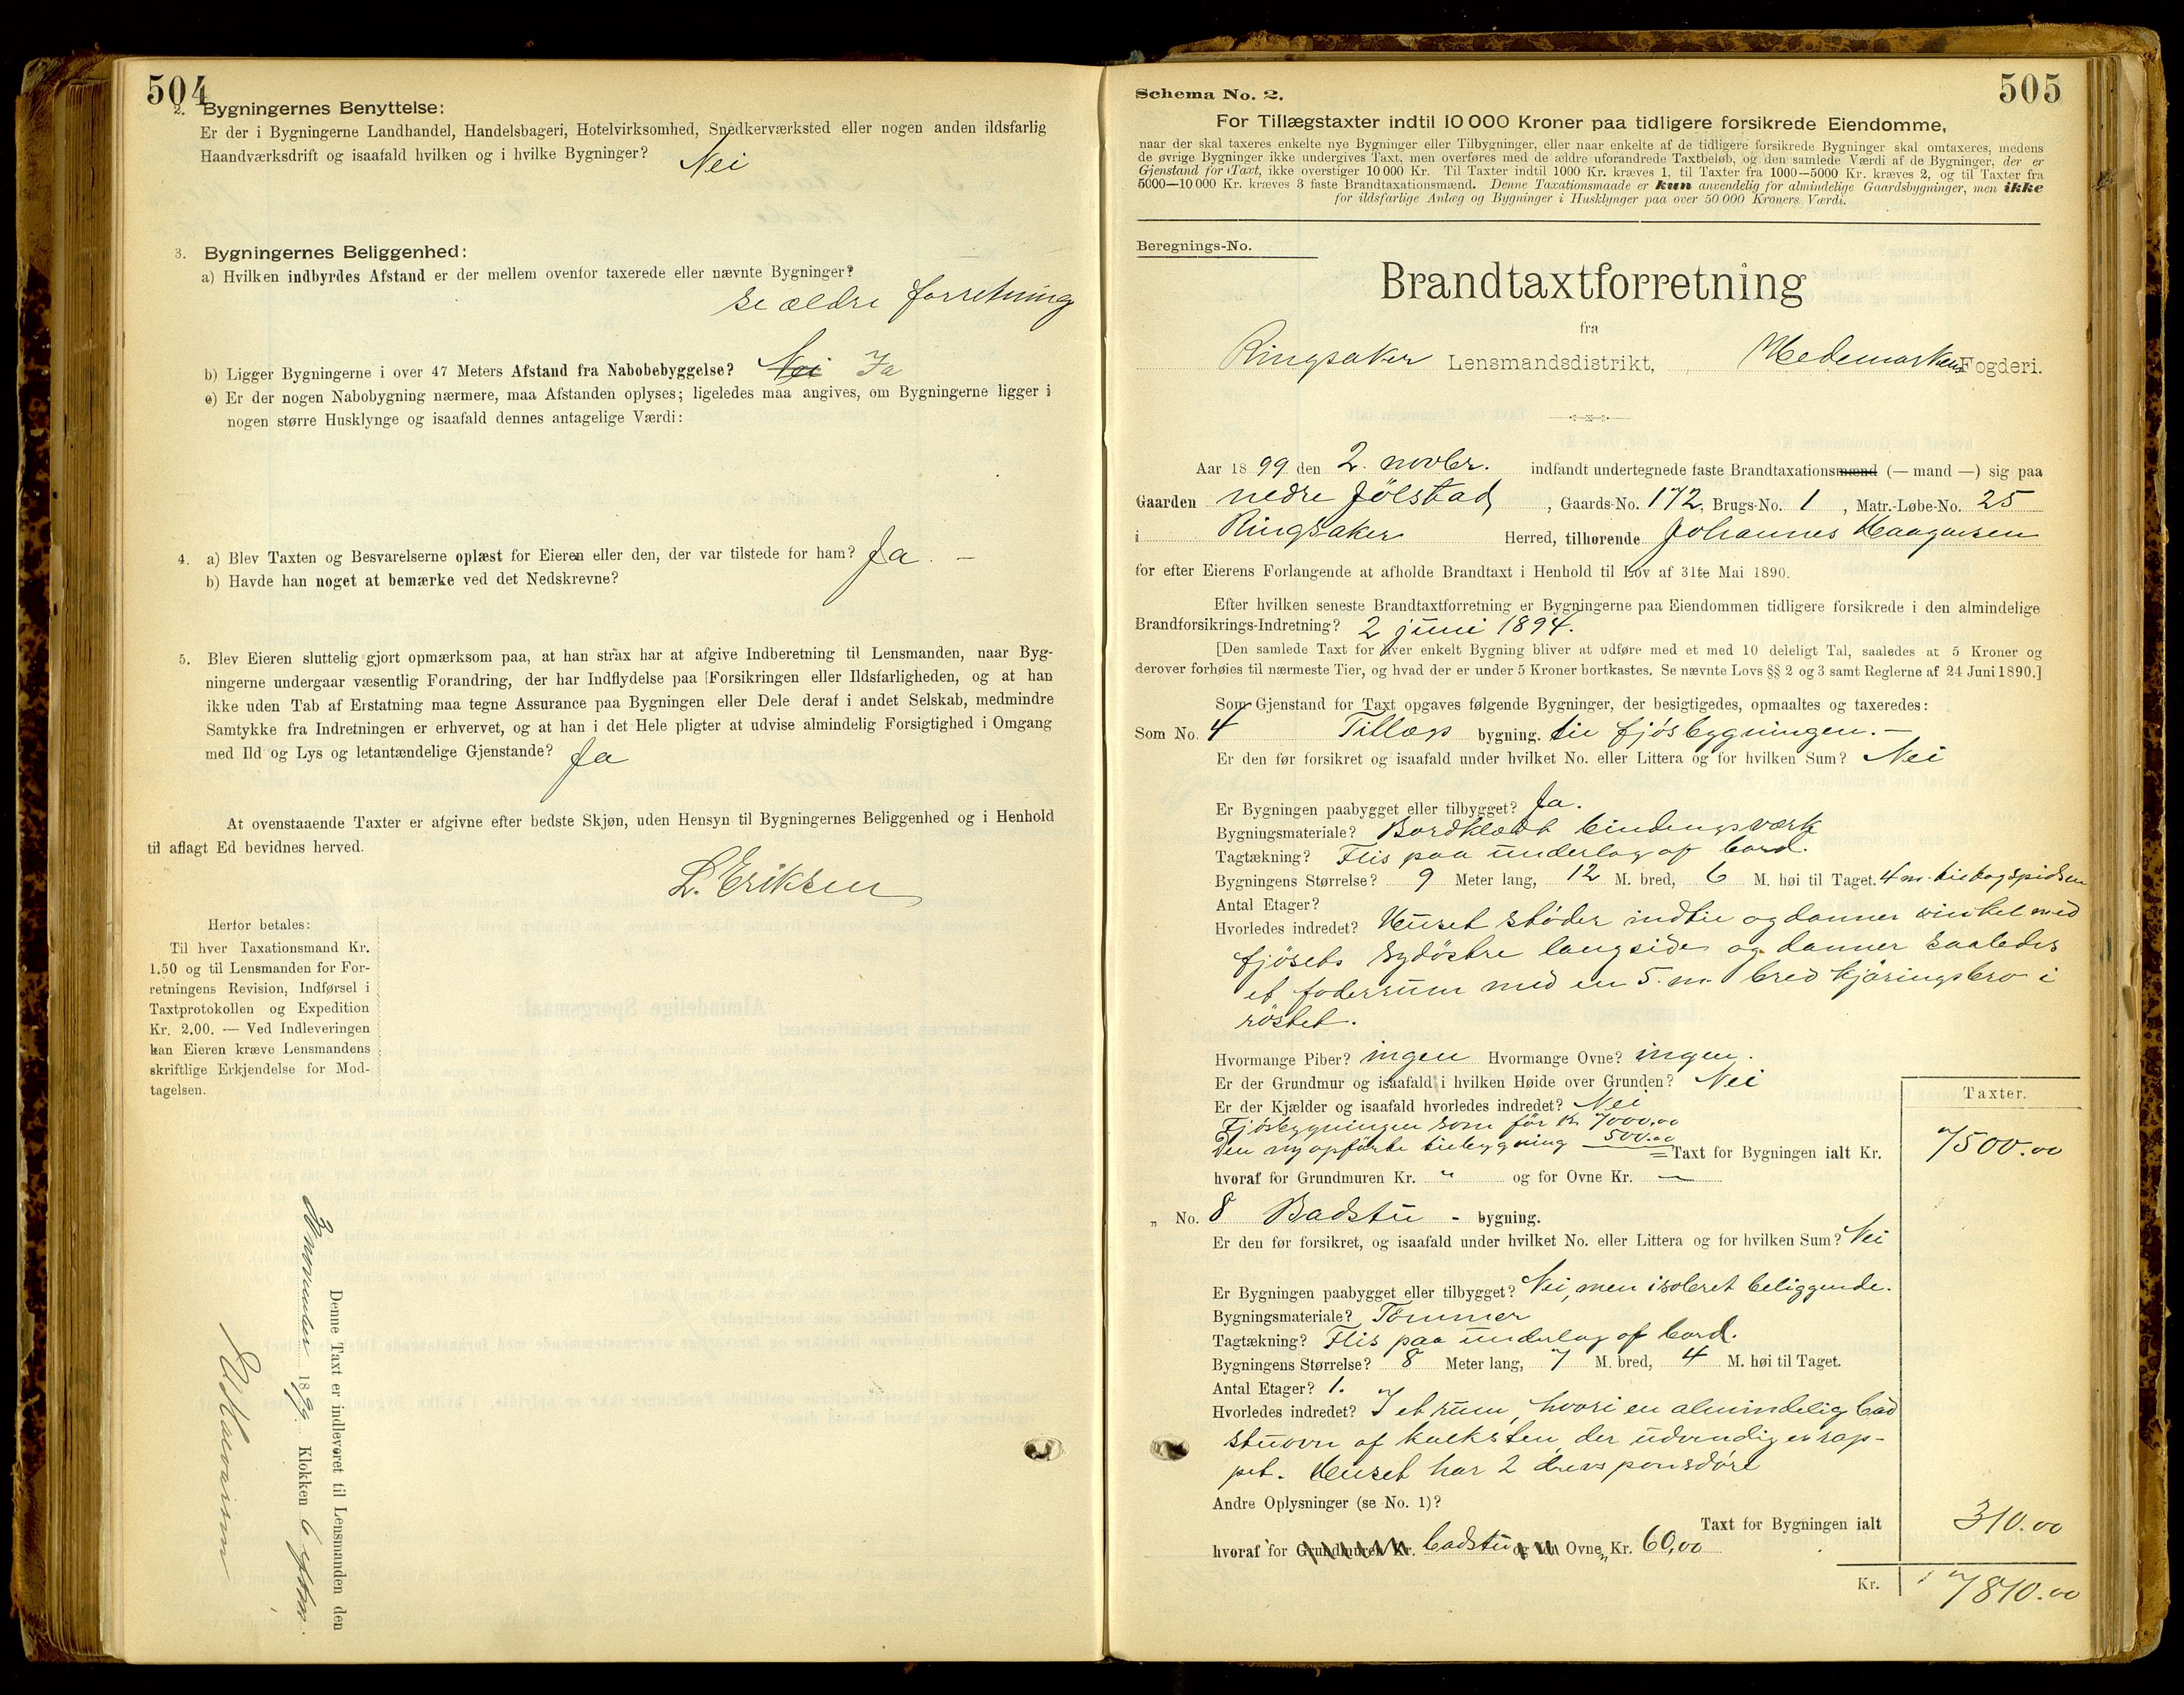 504
2. Bygningernes Benyttelse:
Er der i Bygningerne Landhandel, Handelsbageri, Hotelvirksomhed, Snedkerværksted eller nogen anden ildsfarlig
Haandværksdrift og isaafald hvilken og i hvilke Bygninger? Nei
3. Bygningernes Beliggenhed:
a) Hvilken indbyrdes Afstand er der mellem ovenfor taxerede eller nævnte Bygninger?
se ældre forretning
b) Ligger Bygningerne i over 47 Meters Afstand fra Nabobebyggelse? Nei Ja
c) Er der nogen Nabobygning nærmere, maa Afstanden oplyses; ligeledes maa angives, om Bygningerne ligger i
nogen større Husklynge og isaafald dennes antagelige Værdi:
4. a) Blev Taxten og Besvarelserne oplæst for Eieren eller den, der var tilstede for ham? Ja. —
b) Havde han noget at bemærke ved det Nedskrevne?
5. Blev Eieren sluttelig gjort opmærksom paa, at han strax har at afgive Indberetning til Lensmanden, naar Byg-
ningerne undergaar væsentlig Forandring, der har Indflydelse paa Forsikringen eller Ildsfarligheden, og at han
ikke uden Tab af Erstatning maa tegne Assurance paa Bygningen eller Dele deraf i andet Selskab, medmindre
Samtykke fra Indretningen er erhvervet, og at han i det Hele pligter at udvise almindelig Forsigtighed i Omgang
med Ild og Lys og letantændelige Gjenstande? Ja
At ovenstaaende Taxter er afgivne efter bedste Skjøn, uden Hensyn til Bygningernes Beliggenhed og i Henhold
til aflagt Ed bevidnes herved.
L. Eriksen
Herfor betales:
Til hver Taxationsmand Kr.
1.50 og til Lensmanden for For-
retningens Revision, Indførsel i
Taxtprotokollen og Expedition
Kr. 2.00. — Ved Indleveringen
kan Eieren kræve Lensmandens
skriftlige Erkjendelse for Mod-
tagelsen.
Denne Taxt er indleveret til Lensmanden den
november 1899 Klokken 6
505
Schema No. 2.
For Tillægstaxter indtil 10 000 Kroner paa tidligere forsikrede Eiendomme,
naar der skal taxeres enkelte nye Bygninger eller Tilbygninger, eller naar enkelte af de tidligere forsikrede Bygninger skal omtaxeres, medens
de øvrige Bygninger ikke undergives Taxt, men overføres med de ældre uforandrede Taxtbeløb, og den samlede Værdi af de Bygninger, der er
Gjenstand for Taxt, ikke overstiger 10 000 Kr. Til Taxter indtil 1000 Kr. kræves 1, til Taxter fra 1000—5000 Kr. kræves 2, og til Taxter fra
5000—10 000 Kr. kræves 3 faste Brandtaxationsmænd. Denne Taxationsmaade er kun anvendelig for almindelige Gaardsbygninger, men ikke
for ildsfarlige Anlæg og Bygninger i Husklynger paa over 50 000 Kroners Værdi.
Beregnings-No.
Brandtaxtforretning
fra
Ringsaker Lensmandsdistrikt, Hedemarkens Fogderi.
Aar 1899 den 2. novbr. indfandt undertegnede faste Brandtaxationsmænd (— mand —) sig paa
Gaarden nedre Jölstad, Gaards-No. 172, Brugs-No. 1, Matr.-Løbe-No. 25
i Ringsaker Herred, tilhørende Johannes Haagensen
for efter Eierens Forlangende at afholde Brandtaxt i Henhold til Lov af 31te Mai 1890.
Efter hvilken seneste Brandtaxtforretning er Bygningerne paa Eiendommen tidligere forsikrede i den almindelige
Brandforsikrings-Indretning? 2 juni 1894.
[Den samlede Taxt for hver enkelt Bygning bliver at udføre med et med 10 deleligt Tal, saaledes at 5 Kroner og
derover forhøies til nærmeste Tier, og hvad der er under 5 Kroner bortkastes. Se nævnte Lovs §§ 2 og 3 samt Reglerne af 24 Juni 1890.]
Som Gjenstand for Taxt opgaves følgende Bygninger, der besigtigedes, opmaaltes og taxeredes:
Som No. 4 Tillægs bygning. til fjösbygningen. —
Er den før forsikret og isaafald under hvilket No. eller Littera og for hvilken Sum? Nei
Er Bygningen paabygget eller tilbygget? Ja.
Bygningsmateriale? Bordklædt bindingsværk
Tagtækning? Flis paa underlag af bord.
Bygningens Størrelse? 9 Meter lang, 12 M. bred, 6 M. høi til Taget. 4 m. til tagspidsen
Antal Etager?
Hvorledes indredet? Huset støder indtil og danner vinkel med
fjösets sydöstre langside og danner saaledes
et foderrum med en 5. m. bred kjöringsbro i
röstet.
Hvormange Piber? ingen Hvormange Ovne? ingen.
Er der Grundmur og isaafald i hvilken Høide over Grunden? Nei
Er der Kjælder og isaafald hvorledes indredet? Nei
Fjösbygningen som för kr 7000,00
Den nyopförte tilbygning 500.00 Taxt for Bygningen ialt Kr. 7500.00
Taxter.
hvoraf for Grundmuren Kr. " og for Ovne Kr. —
„ No. 8 Badstu - bygning.
Er den før forsikret, og isaafald under hvilket No. eller Littera og for hvilken Sum? Nei
Er Bygningen paabygget eller tilbygget? Nei, men isoleret beliggende.
Bygningsmateriale? Tömmer
Tagtækning? Flis paa underlag af bord.
Bygningens Størrelse? 8 Meter lang, 7 M. bred, 4 M. høi til Taget.
Antal Etager? 1.
Hvorledes indredet? I et rum, hvori en almindelig bad
stuovn af kalksten, der udvendig er rap-
pet. Huset har 2 døre
Andre Oplysninger (se No. 1)?
Taxt for Bygningen ialt 310.00
hvoraf for Grundmuren Kr. badstu og for Ovne„ Kr. 60,00
Kr. 7810.00